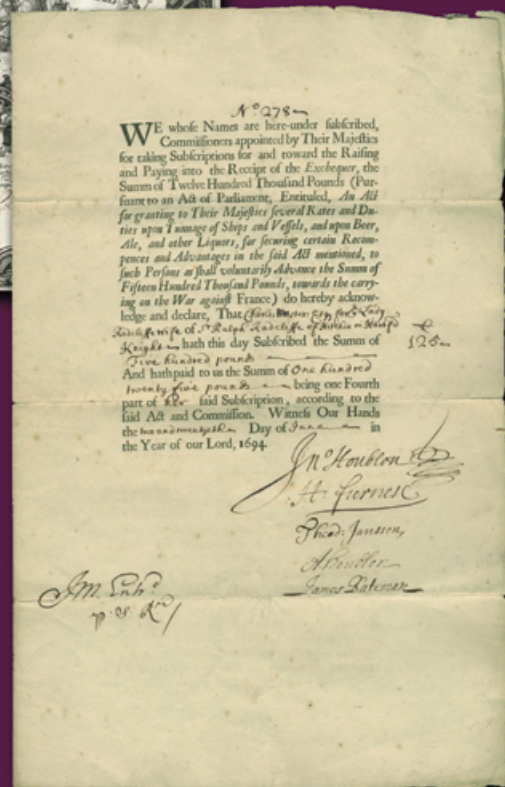 No 278
WE whose Names are here-under ſubſcribed,
Commiſſioners appointed by Their Majeſties
for taking Subſcriptions for and toward the Raiſing
and Paying into the Receipt of the Exchequer, the
Summ of Twelve Hundred Thouſand Pounds (Pur-
ſuant to an Act of Parliament, Entituled, An Act
for granting to Their Majeſties ſeveral Rates and Du-
ties upon Tunnage of Ships and Veſſels, and upon Beer,
Ale, and other Liquors, for ſecuring certain Recom-
pences and Advantages in the ſaid Act mentioned, to
ſuch Perſons as ſhall voluntarily Advance the Summ of
Fifteen Hundred Thouſand Pounds, towards the carry-
ing on the War againſt France) do hereby acknow-
ledge and declare, That Charles Esqr for Lady
Radcliffe wife of Sr Ralph Radcliffe of Hitchin in
Knight hath this day Subſcribed the Summ of
Five hundred pounds
125
And hath paid to us the Summ of One hundred
twenty five pounds being one Fourth
part of her ſaid Subſcription, according to the
ſaid Act and Commiſſion. Witneſs Our Hands
the Day of June in
the Year of our Lord, 1694.
Jno Houblon
H. Furnese
Theod: Janssen,
A Houblon
James Bateman
JM.